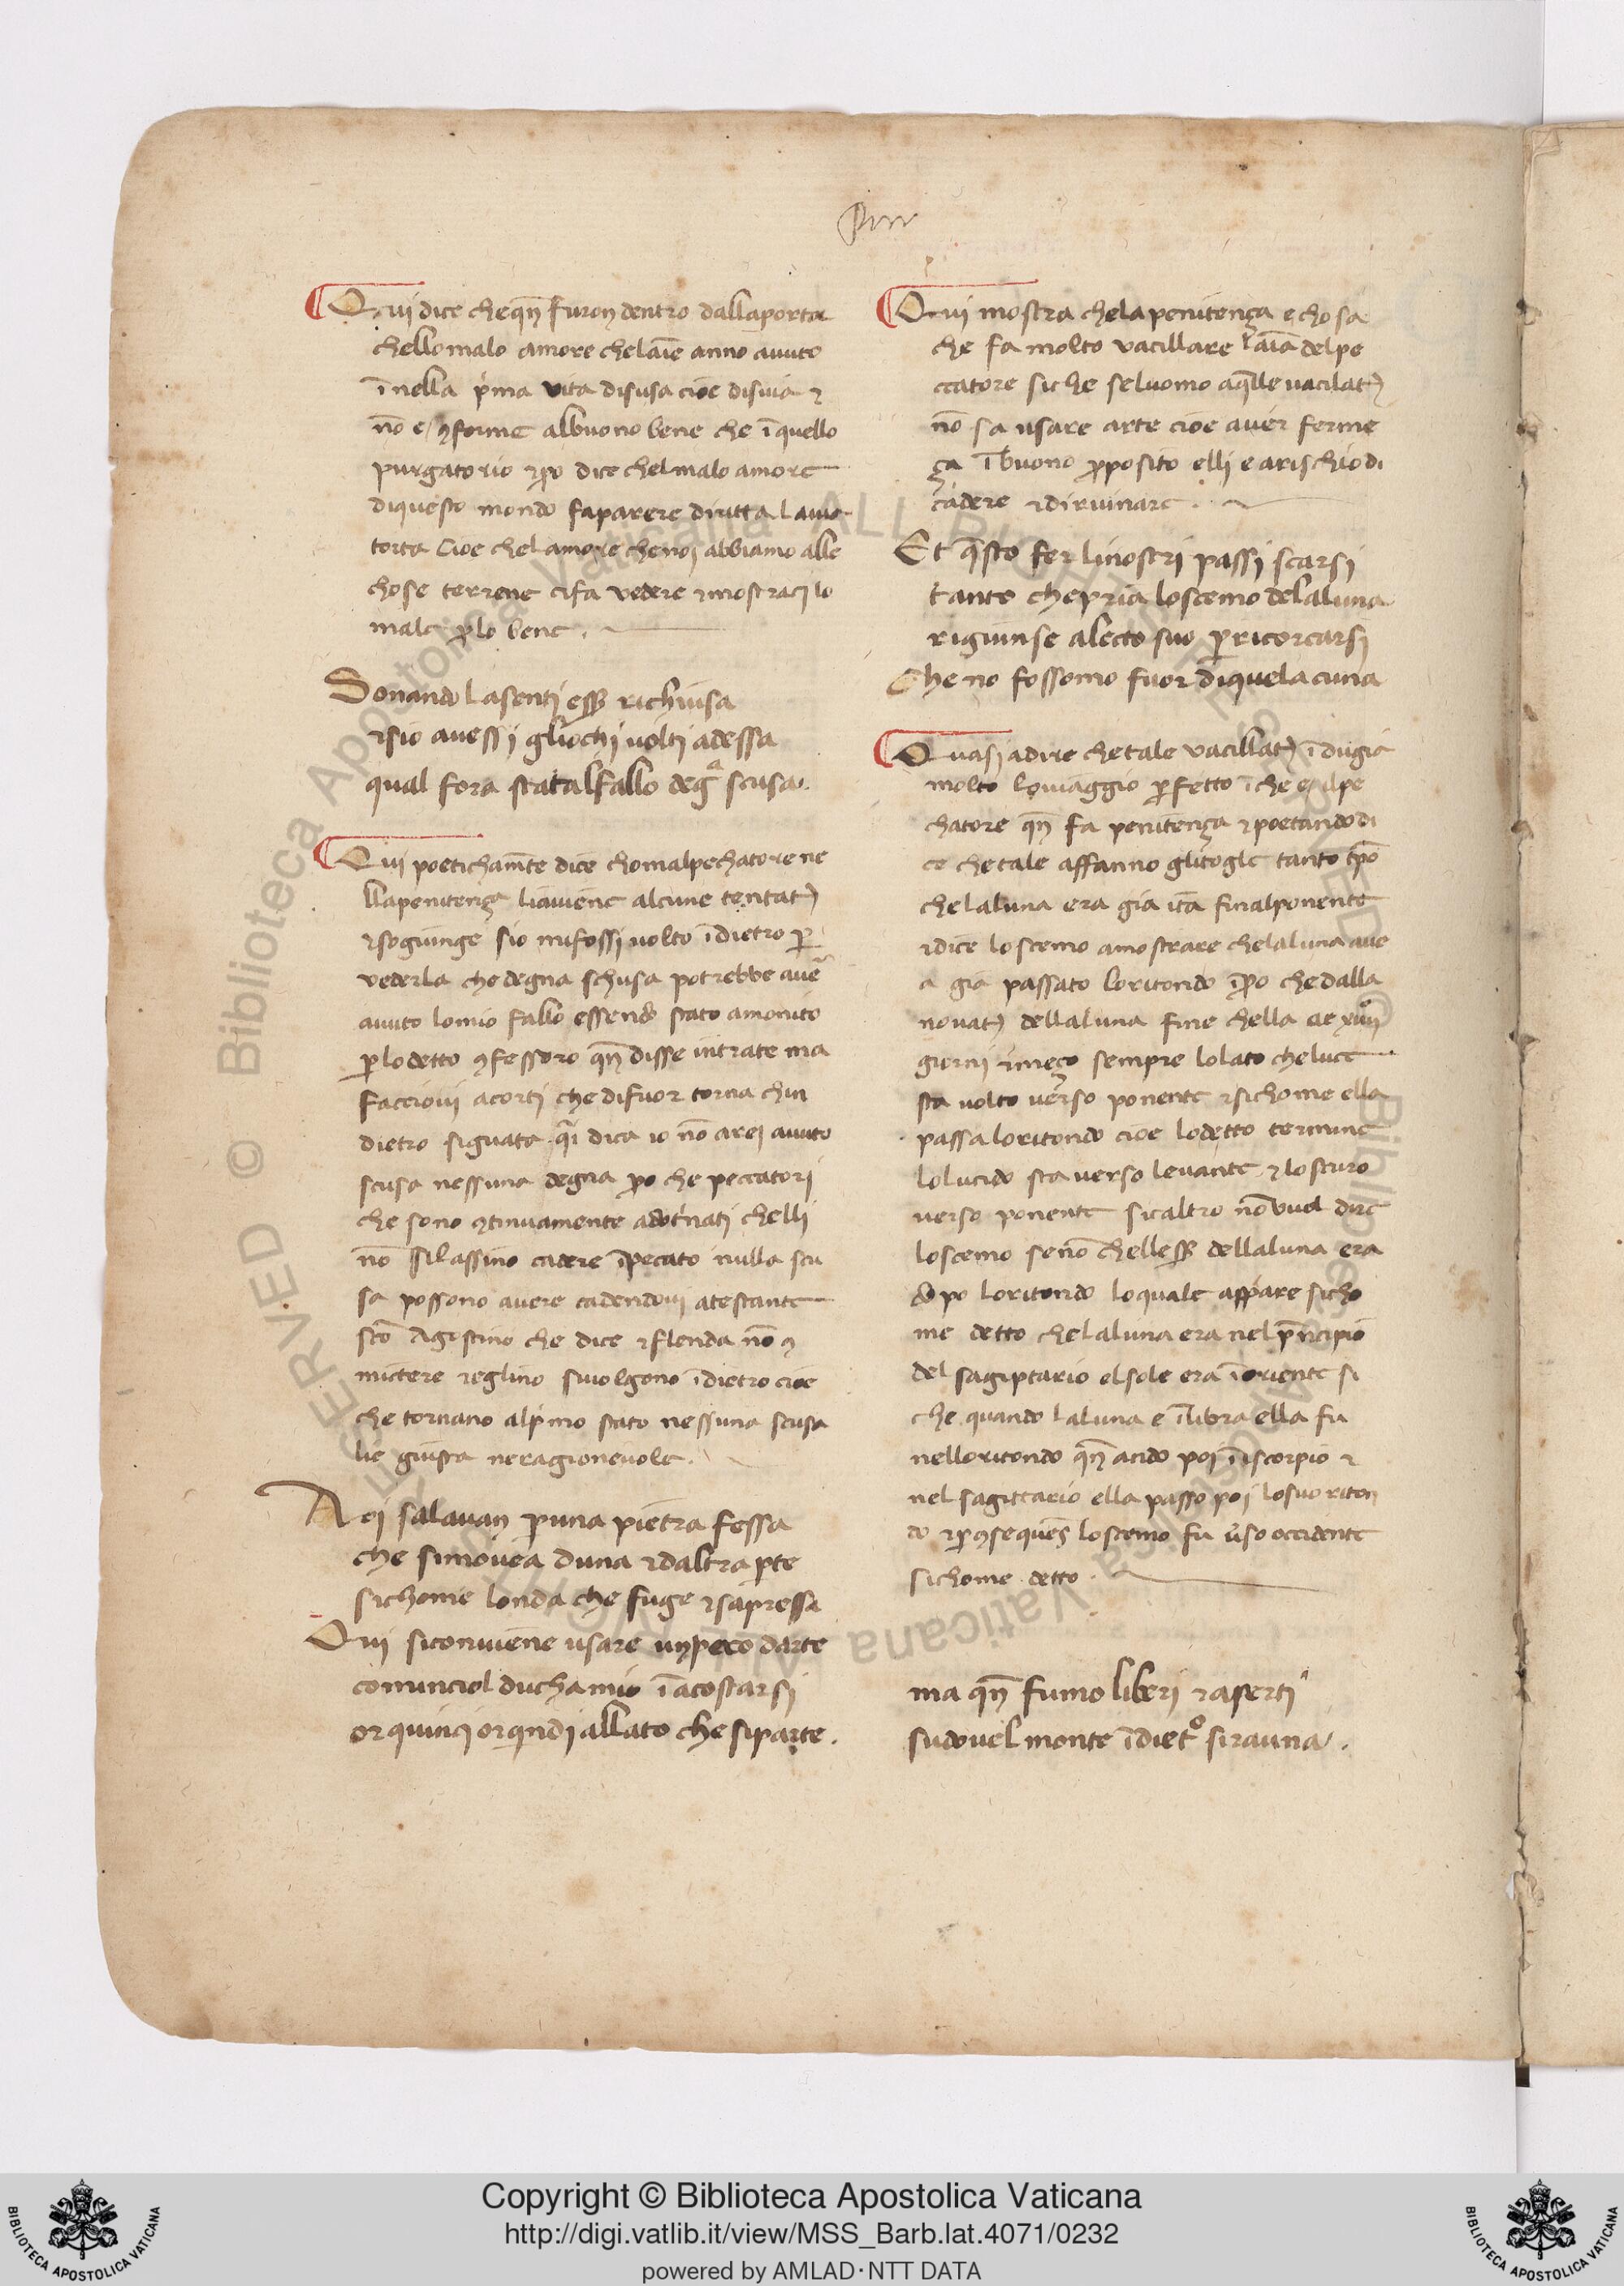 Qui dice che qn̄ furon dentro dalla porta
chello malo amore che laīe anno auuto
ī nella p̍ma vita disusa cioe disuia ⁊
nō e ꝯforme albuono bene che ī quello
purgatorio ⁊ ꝑo dice chel malo amore
di questo mondo fa parere diritta la uia
torta Cioe chel amore che noi abbiamo alle
chose terrene ci fa vedere ⁊ mostraci lo
male ꝑ lo bene .
Sonando la senti eſſ̉ richiusa
⁊ sio auessi gliochi uolti adessa
qual fora stata alfallo degᷓ scusa .
Qui poetichamēte dice chomal pechatore ne
lla penitença li auiene alcune tentatꝫ
⁊ sogiunge sio mi fossi uolto īdietro ꝑ
vederla che degna schusa potrebbe auē
auuto lo mio fallo essendo stato amonito
ꝑ lo detto ꝯfessoro qn̄ disse intrate ma
facciovi acorti che di fuor torna chin
dietro si guata q̄i dica io nō arei auuto
scusa nessuna degna ꝑo che peccatori
che sono ꝯtinuamente adot̍nati chelli
nō si lassino cadere ī pecato nulla scu
sa possono auere cadendoui atestante
sc̄o Agostino che dice ⁊ flenda nō ꝯ
mictere ⁊ eglino si uolgono īdietro cioe
che tornano alp̍mo stato nessuna scusa
lie giusta ne ragioneuole .
Noi salauan ꝑ una pietra fessa
che si mouea duna ⁊ daltra ꝑte
sichome londa che fuge ⁊ sapressa
Qui si conuiene usare un poco darte
comincio l ducha mio ī acostarsi
or quinci or quindi allato che si parte .
Qui mostra che la penitença e chosa
che fa molto vacillare l aīa del pe
ccatore siche seluomo aq̄lle uacilatꝫ
nō sa usare arte cioe auer ferme
ça ī buono ꝓposito elli e arischio di
cadere ⁊ di ruinare .
Et q̄sto fer li nostri passi scarsi
tanto che pria lo scemo de la luna
rigiunse alecto suo ꝑ ricorcarsi
Che no fossomo fuor di quela cuna
Quasi a dire che tale vacillatꝫ īdugia
molto lo uiaggio ꝑfetto ī che e ilpe
chatore qn̄ fa penitença ⁊ poetando di
ce che tale affanno gli togle tanto tp̄o
che la luna era gia ita fin al ponente
⁊ dice lo scemo a mostrare che la luna aue
a gia passato lo ritondo īꝑo che dalla
nouatꝫ della luna fine chella
giorni ⁊ meço sempre lo lato che luce
sta uolto uerso ponente ⁊ sichome ella
passa lo ritondo cioe lo detto termine
lo lucido sta uerso leuante ⁊ lo scuro
uerso ponente sicaltro nō vuol dire
lo scemo se nō chelleſſ̉ della luna era
dopo lo ritondo lo quale appare sicho
me detto che la luna era nel p̄ncipio
del sagiptario el sole era ī oriente si
che quando la luna e ī libra ella fu
nello ritondo qn̄ ando poi ī iscorpio ⁊
nel sagittario ella passo poi lo suo riton
do ⁊ ꝑ ꝯsequēs lo scemo fu u̍so occidente
sichome detto .
ma qn̄ fumo liberi ⁊ aperti
su doue l monte īdietº si rauna .
Copyright © Biblioteca Apostolica Vaticana
http://digi.vatlib.it/view/MSS_Barb.lat.4071/0232
powered by AMLAD·NTT DATA
BIBLIOTECA APOSTOLICA VATICANA
BIBLIOTECA APOSTOLICA VATICANA